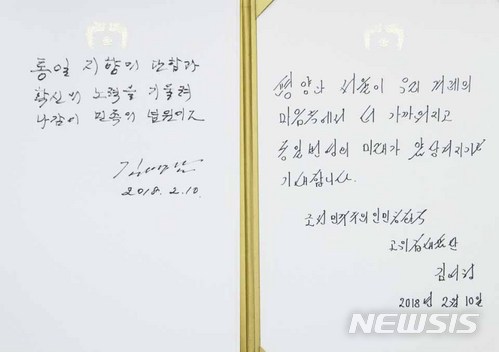 통일 지향의 단합과
확신의 노력을 기울려
나감이 민족의 념원이고
김영남
2018. 2. 10.
평양과 서울이 우리 겨레의
마음속에서 더 가까워지고
통일번영의 미래가 앞당겨지기를
기대합니다.
조선민주주의인민공화국
고위급대표단
김여정
2018년 2월 10일
NEWSIS